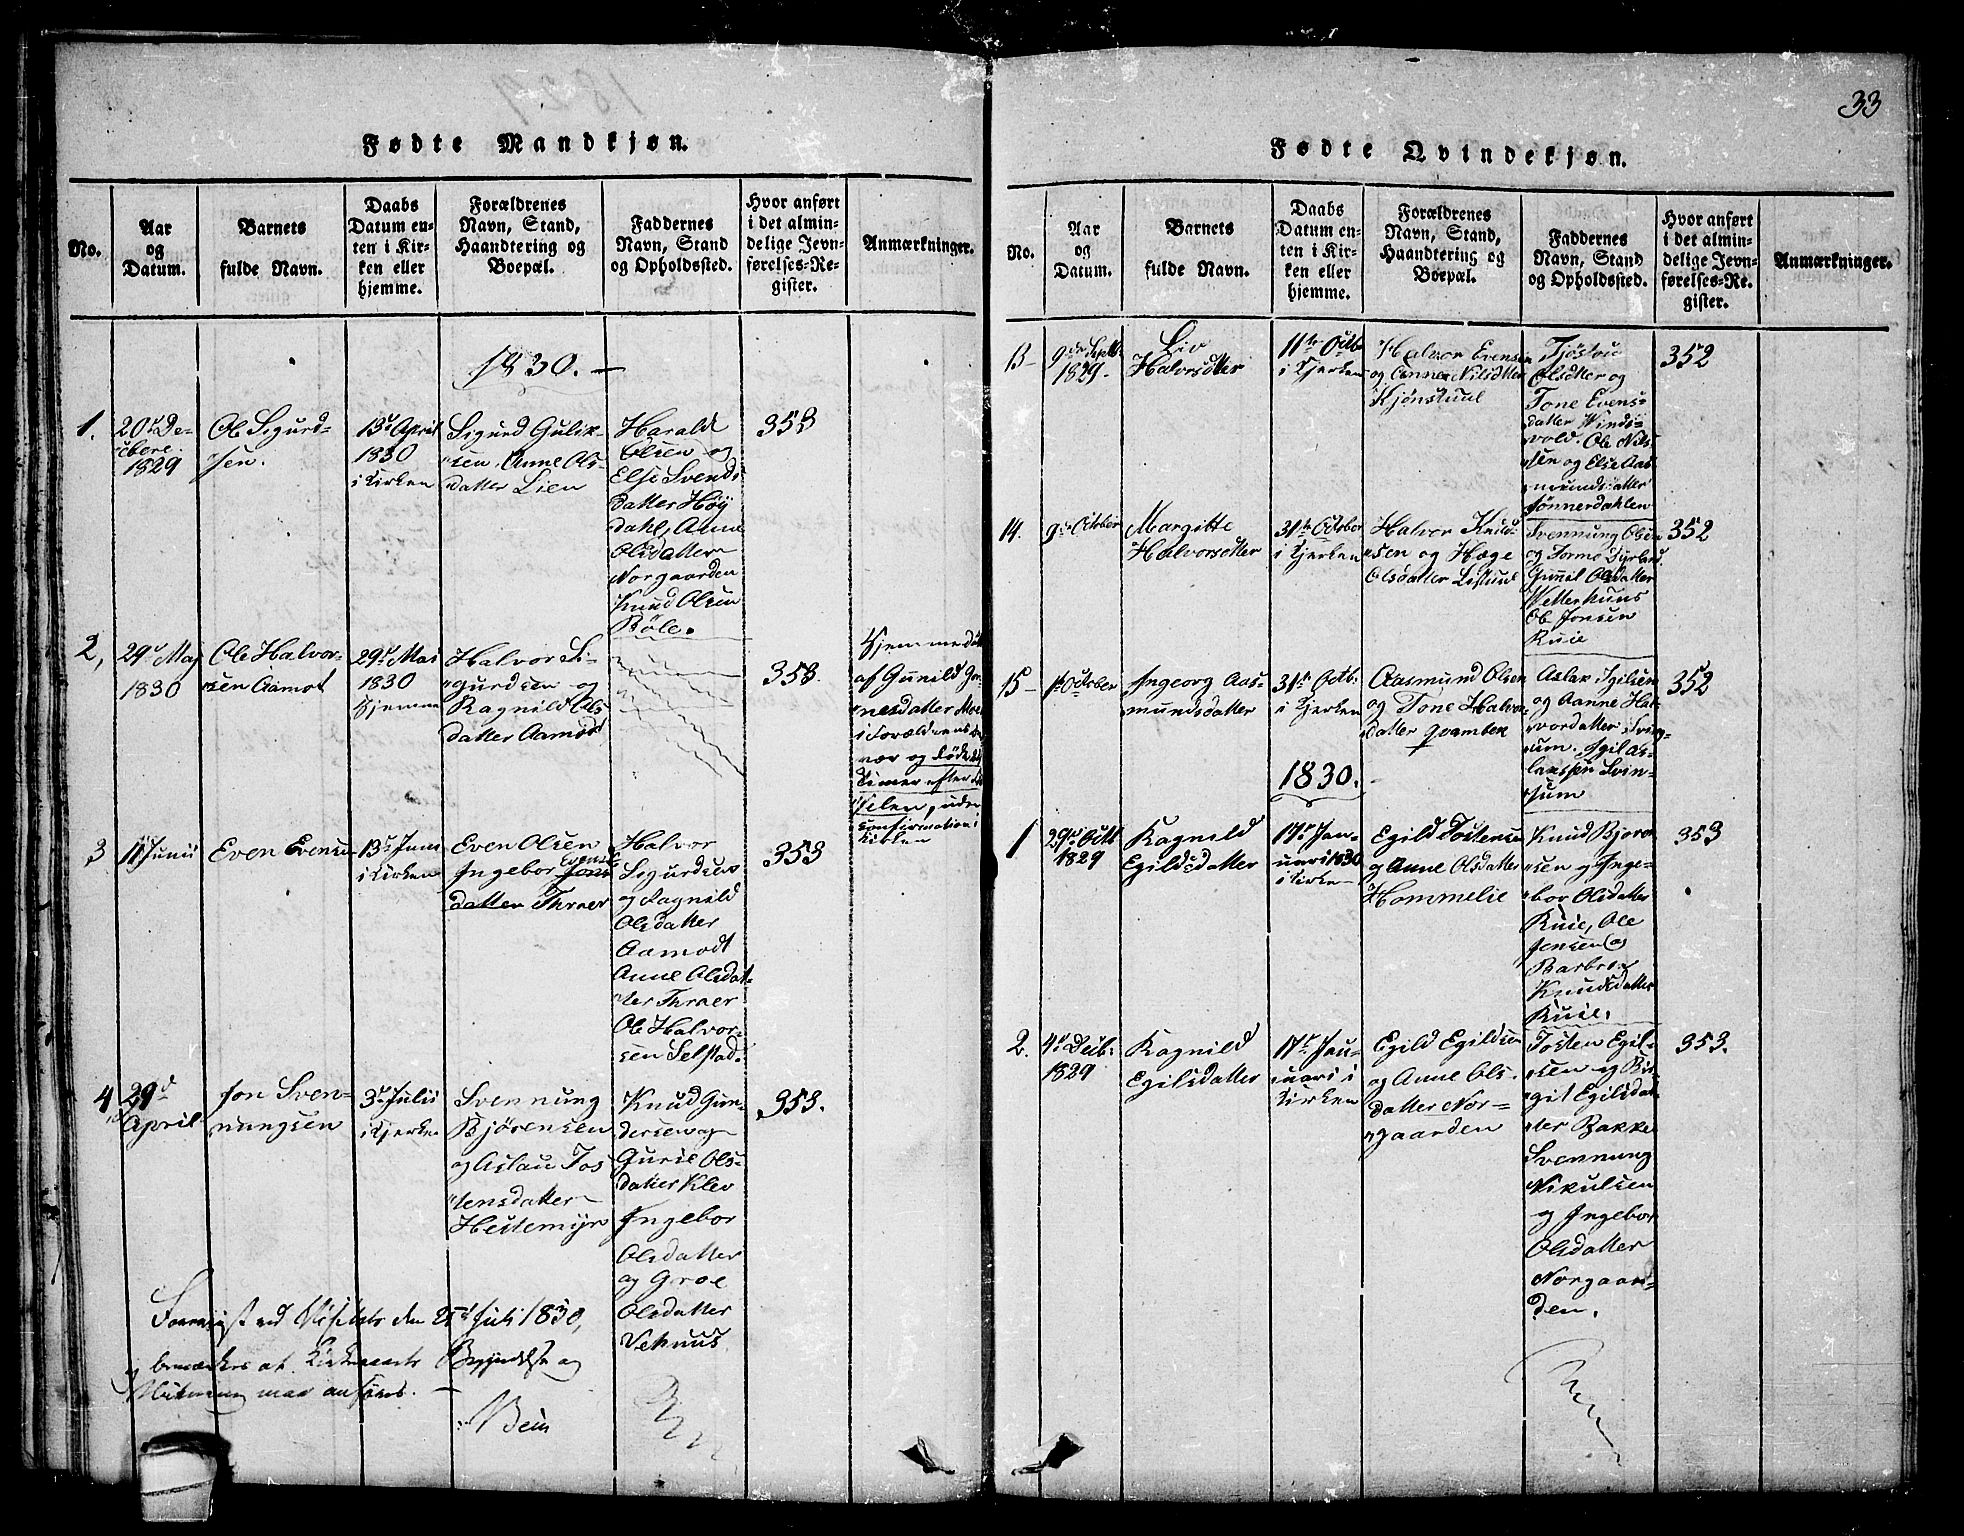 33
Fødte Mandkjøn.
No.
Aar
og
Datum.
Barnets
fulde Navn.
Daabs
Datum en-
ten i Kir-
ken eller
hjemme.
Forældrenes
Navn, Stand,
Haandtering og
Boepæl.
Faddernes
Navn, Stand
og Opholdssted.
Hvor anført
i det almin-
delige Jevn-
førelses-Re-
gister.
Anmærkninger.
1830.
1.
20d De-
cbore.
1829
Ole Sigurd-
sen.
13d April
1830
i Kirken
Sigurd Gulik-
sen. Anne Ols-
datter Lien
Harald
Olsen og
Else Svends
datter Høy
dahl, Anne
Olsdatter
Norgaarden
Knud Olsen
Böle.
353
2,
29d Maj
1830
Ole Halvor-
sen Aamot
29d Mai
1830
Hjemme
Halvor Si-
gurdsen og
Ragnild Ols
datter Aamodt
353.
Hjemmedøbt
af Gunild
i Forældrenes
vær og
Timer efter
confirmation i
Kirken
3
11 Junii
Even Evensen
13d Juni
i Kirken
Even Olsen
Ingebor Evens
datter Thraer
Halvor
Sigurdsen
og Ragnild
Olsdatter
Aamodt
Anne Olsdat-
ter Thraer
Ole Halvor-
sen Selstad.
353
4
29d
April
Jon Sven-
nungsen
3d Julii
i Kjerken
Svennung
Bjørensen
og Aslau Tos
tensdatter
Hestemyr
Knud Gun-
dersen og
Gurie Ols-
datter Klev
Ingebor
Olsdatter
og Groe
Olsdatter
Vehuus
353.
Foreviist ved Visitats den 25d Juli 1830,
bemærkes at Begyndelse og
Slutning maa anføres.
Fødte Qvindekjøn.
No.
Aar
og
Datum.
Barnets
fulde Navn.
Daabs
Datum en-
ten i Kir-
ken eller
hjemme.
Forældrenes
Navn, Stand,
Haandtering og
Boepæl.
Faddernes
Navn, Stand
og Opholdssted.
Hvor anført
i det almin-
delige Jevn-
førelses-Re-
gister.
Anmærkninger.
13
9de Septb.
1829.
Liv
Halvorsdtter
11te Octb.
i Kjerken
Halvor Evensen
og Anne Nilsdtter
Kjönstuul
Tjöstou
Olsdtter og
Tone Evens-
datter Winds-
vold. Ole Nils-
sen og Else Aas-
mundsdatter
Jönnerdahlen
352
14.
9d October
Margitte
Halvorsdtter
31te October
i Kjerken
Halvor Knud-
sen og Hæge
Olsdatter Listuul
Svennung Olsen
og Torme Dyrland
Gunil Olsdatter
Wetterhuus
Ole Jonsen
Ruie
352
15
1st October
Ingeorg Aas-
mundsdatter
31te Octb.
i Kjerken
Aasmund Olsen
og Tone Halvor
datter Qvambek
Aslak Igilsen
og Aanne Hal-
vordatter Svin-
sum. Igil As-
laksen Svin-
sum
352
1830.
1
29d Octb
1829
Ragnild
Egildsdatter
17d Jan-
uari 1830
i Kirken
Egild Tostensen
og Anne Olsdatter
Hommelie
Knud Bjorn-
sen og Inge-
bor Olsdatter
Ruie, Ole
Jensen og
Barbro
Knudsdatter
Ruie.
353
2.
4d Decb:
1829
Ragnild
Egilsdatter
17d Jan-
uari i
Kirken
Egild Egildsen
og Anne Ols-
datter Nor-
gaarden
Tosten Egil-
sen og Bir-
git Egilsdat-
ter Bakke
Svennung
Nikulsen
og Ingebor
Olsdatter
Norgaar-
den.
353.